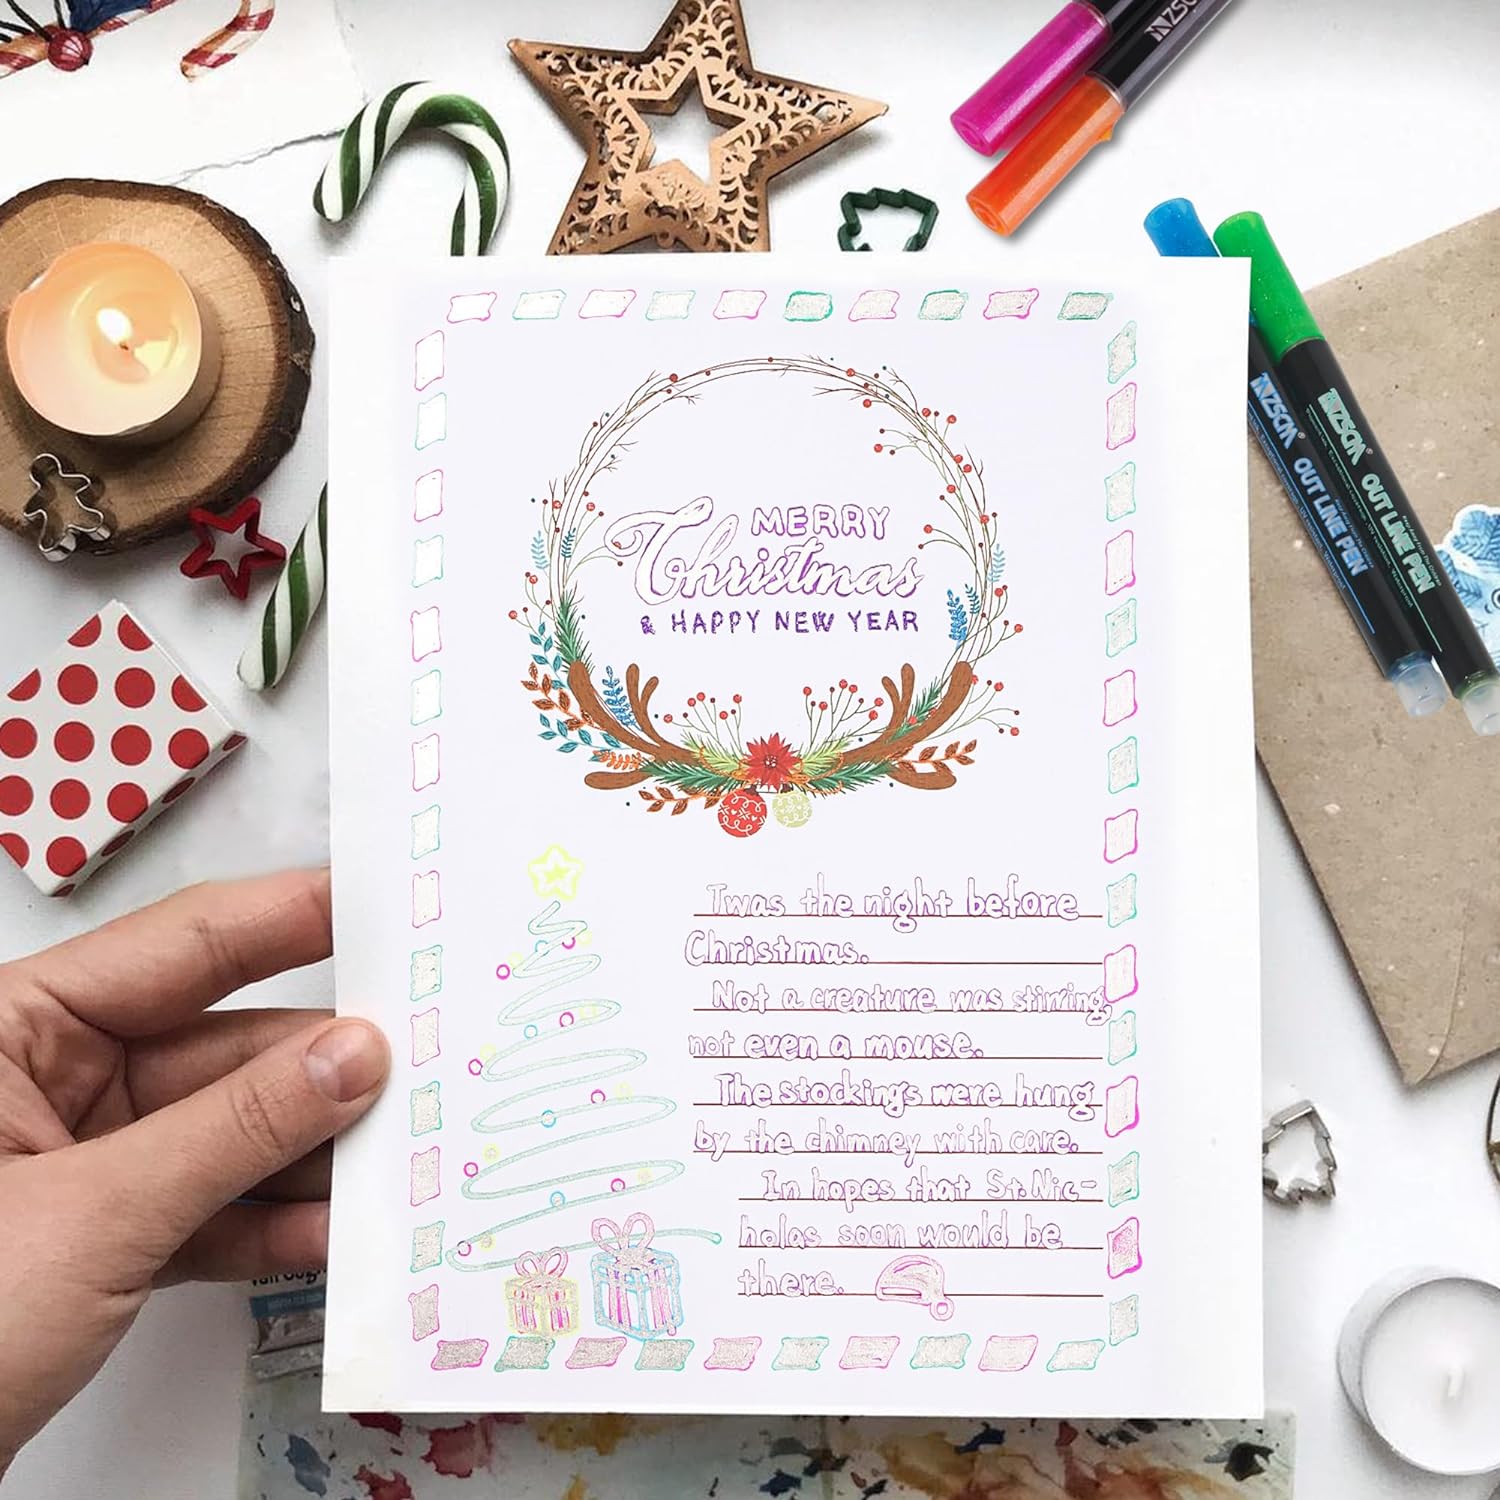 MZSCM
MERRY
Christmas
& HAPPY NEW YEAR
MZSCM® OUT LINE PEN
MZSCM® OUT LINE PEN
Twas the night before
Christmas.
Not a creature was stirring,
not even a mouse.
The stockings were hung
by the chimney with care.
In hopes that St. Nic-
holas soon would be
there.